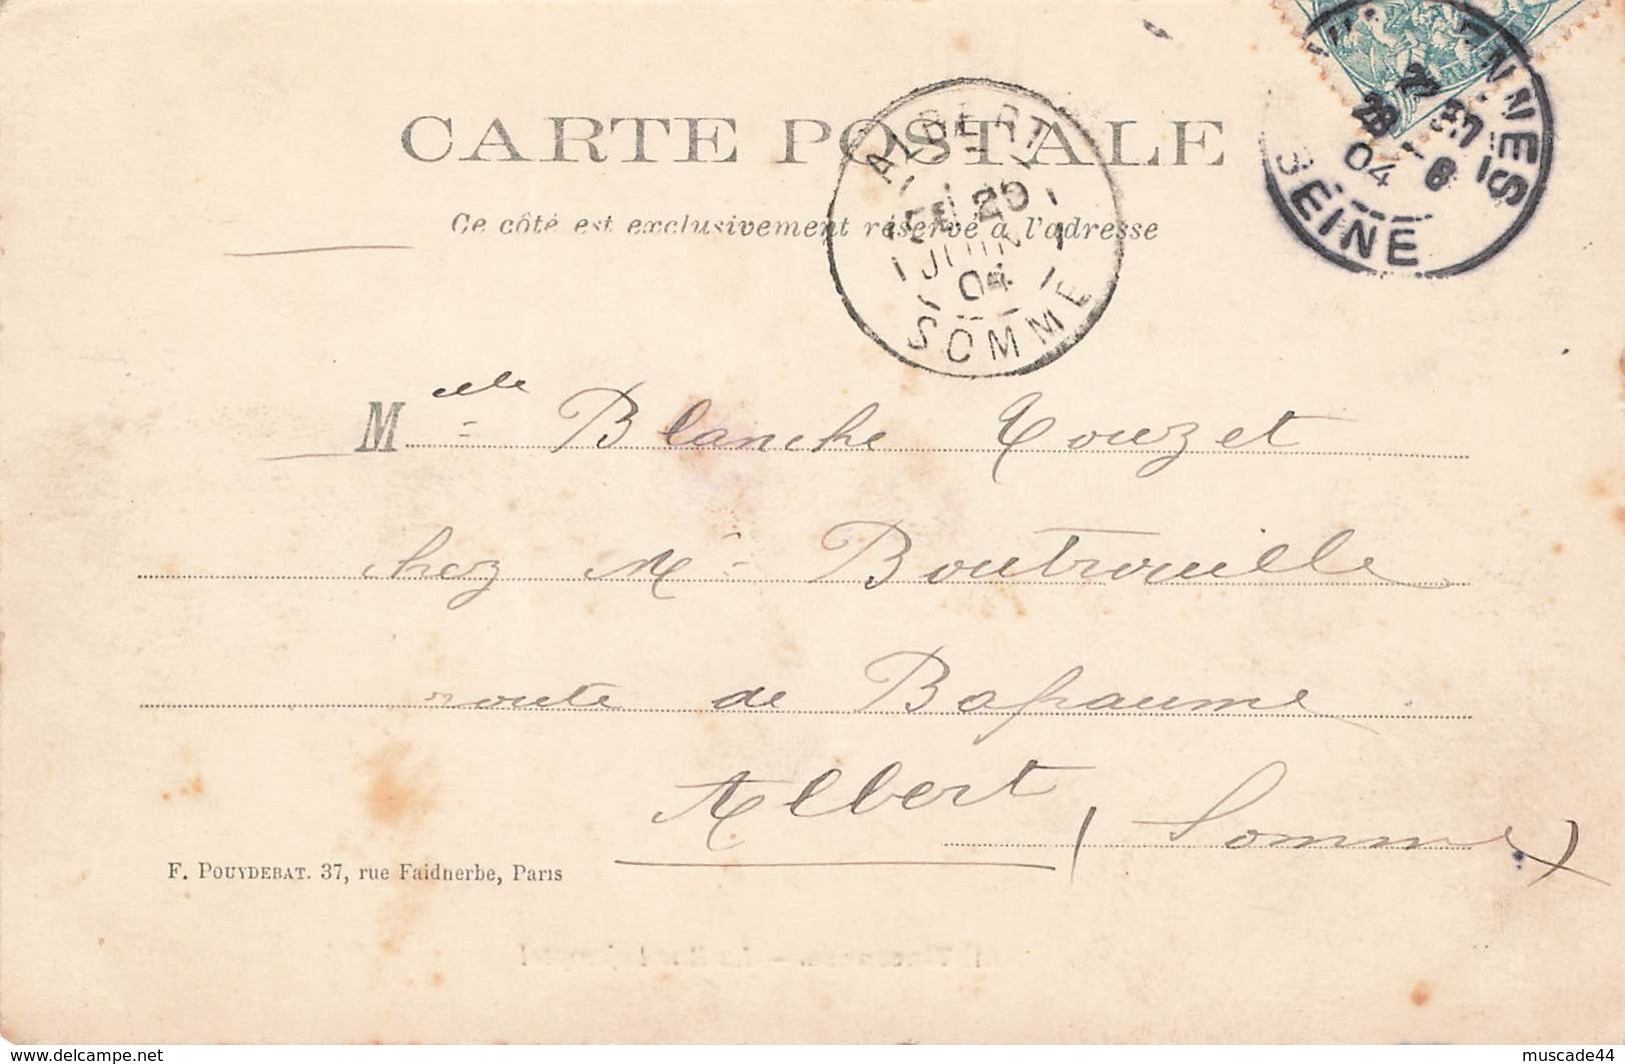 CARTE POSTALE
Ce côté est exclusivement réservé à l'adresse
ALBERT
29
JUIN
04
SOMME
28
04
SEINE
Melle Blanche Touzet
chez Mr Boutrouille
route de Bapaume
Albert (Somme)
F. POUYDEBAT. 37, rue Faidherbe, Paris
www.delcampe.net
muscade44